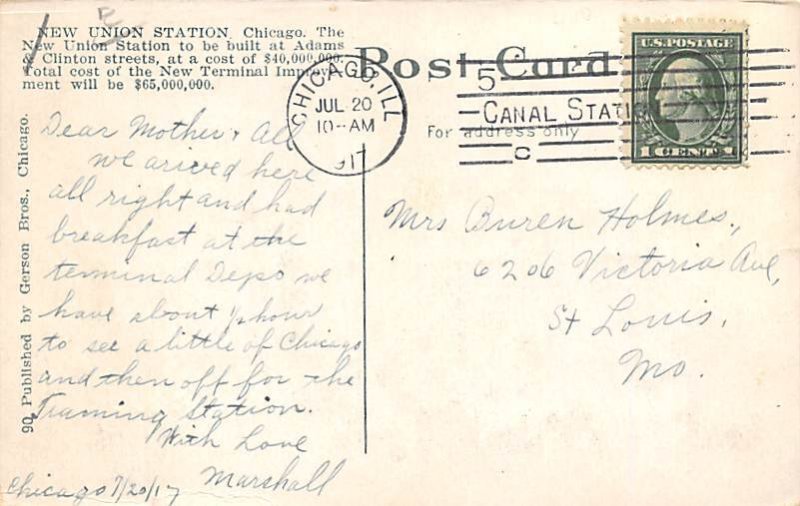 NEW UNION STATION, Chicago. The
New Union Station to be built at Adams
& Clinton streets, at a cost of $40,000,000.
Total cost of the New Terminal Improve-
ment will be $65,000,000.
Post Card
For address only
CHICAGO, ILL
JUL 20
10-AM
1917
5
CANAL STATION
C
U.S. POSTAGE
1 CENT 1
90 Published by Gerson Bros., Chicago.
Dear Mother & All
we arived here
all right and had
breakfast at the
terminal Depo we
have about 1/2 hour
to see a little of Chicago
and then off for the
Training Station.
With Love
Marshall
Chicago 7/20/17
Mrs Buren Holmes,
6206 Victoria Ave,
St Louis,
Mo.